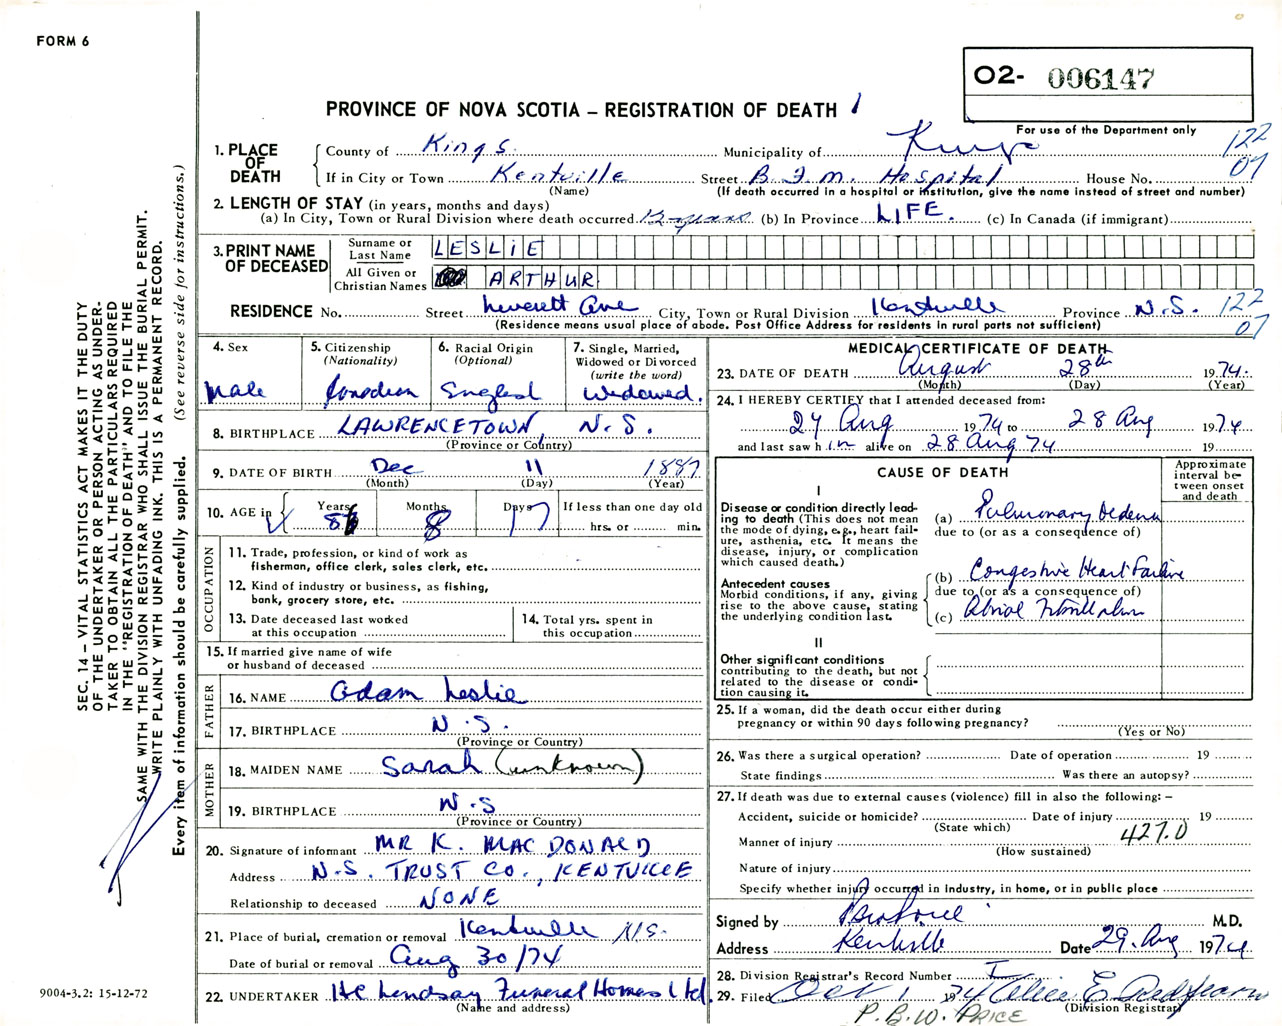 FORM 6
O2- 006147
PROVINCE OF NOVA SCOTIA – REGISTRATION OF DEATH
For use of the Department only
122
07
1. PLACE OF DEATH
County of Kings Municipality of Kings
If in City or Town Kentville Street B.F.M. Hospital House No.
(Name) (If death occurred in a hospital or institution, give the name instead of street and number)
2. LENGTH OF STAY (in years, months and days)
(a) In City, Town or Rural Division where death occurred (b) In Province LIFE. (c) In Canada (if immigrant)
3. PRINT NAME OF DECEASED
Surname or Last Name LESLIE
All Given or Christian Names ARTHUR
RESIDENCE No. Street Leverett Ave City, Town or Rural Division Kentville Province N.S. 122
07
(Residence means usual place of abode. Post Office Address for residents in rural parts not sufficient)
4. Sex
Male
5. Citizenship
(Nationality)
Canadian
6. Racial Origin
(Optional)
England
7. Single, Married, Widowed or Divorced
(write the word)
Widowed.
8. BIRTHPLACE LAWRENCETOWN, N.S.
(Province or Country)
9. DATE OF BIRTH Dec 11 1887
(Month) (Day) (Year)
10. AGE in
Years 86
Months 8
Days 17
If less than one day old
hrs. or min.
OCCUPATION
11. Trade, profession, or kind of work as
fisherman, office clerk, sales clerk, etc.
12. Kind of industry or business, as fishing,
bank, grocery store, etc.
13. Date deceased last worked
at this occupation
14. Total yrs. spent in
this occupation
15. If married give name of wife
or husband of deceased
FATHER
16. NAME Adam Leslie
17. BIRTHPLACE N.S.
(Province or Country)
MOTHER
18. MAIDEN NAME Sarah (unknown)
19. BIRTHPLACE N.S
(Province or Country)
20. Signature of informant MR K. MACDONALD
Address N.S. TRUST CO., KENTVILLE
Relationship to deceased NONE
21. Place of burial, cremation or removal Kentville N.S.
Date of burial or removal Aug 30/74
22. UNDERTAKER Lindsay Funeral Homes Ltd.
(Name and address)
MEDICAL CERTIFICATE OF DEATH
23. DATE OF DEATH August 28th 1974.
(Month) (Day) (Year)
24. I HEREBY CERTIFY that I attended deceased from:
27 Aug 1974 to 28 Aug 1974
and last saw h im alive on 28 Aug 74 19
CAUSE OF DEATH
Approximate interval between onset and death
I
Disease or condition directly leading to death (This does not mean the mode of dying, e.g., heart failure, asthenia, etc. It means the disease, injury, or complication which caused death.)
(a) Pulmonary Oedema
due to (or as a consequence of)
Antecedent causes
Morbid conditions, if any, giving rise to the above cause, stating the underlying condition last.
(b) Congestive Heart Failure
due to (or as a consequence of)
(c) Atrial Fibrillation
II
Other significant conditions
contributing to the death, but not related to the disease or condition causing it.
25. If a woman, did the death occur either during
pregnancy or within 90 days following pregnancy?
(Yes or No)
26. Was there a surgical operation? Date of operation 19
State findings Was there an autopsy?
27. If death was due to external causes (violence) fill in also the following: –
Accident, suicide or homicide? Date of injury 19
(State which)
427.0
Manner of injury
(How sustained)
Nature of injury
Specify whether injury occurred in industry, in home, or in public place
Signed by M.D.
Address Kentville Date 29. Aug 1974
28. Division Registrar's Record Number
29. Filed Oct 1 1974 Alice E. Redfearn
(Division Registrar)
P.B.W. PRICE
SEC. 14 – VITAL STATISTICS ACT MAKES IT THE DUTY
OF THE UNDERTAKER OR PERSON ACTING AS UNDER-
TAKER TO OBTAIN ALL THE PARTICULARS REQUIRED
IN THE "REGISTRATION OF DEATH" AND TO FILE THE
SAME WITH THE DIVISION REGISTRAR WHO SHALL ISSUE THE BURIAL PERMIT.
WRITE PLAINLY WITH UNFADING INK. THIS IS A PERMANENT RECORD.
Every item of information should be carefully supplied. (See reverse side for instructions.)
9004-3.2: 15-12-72